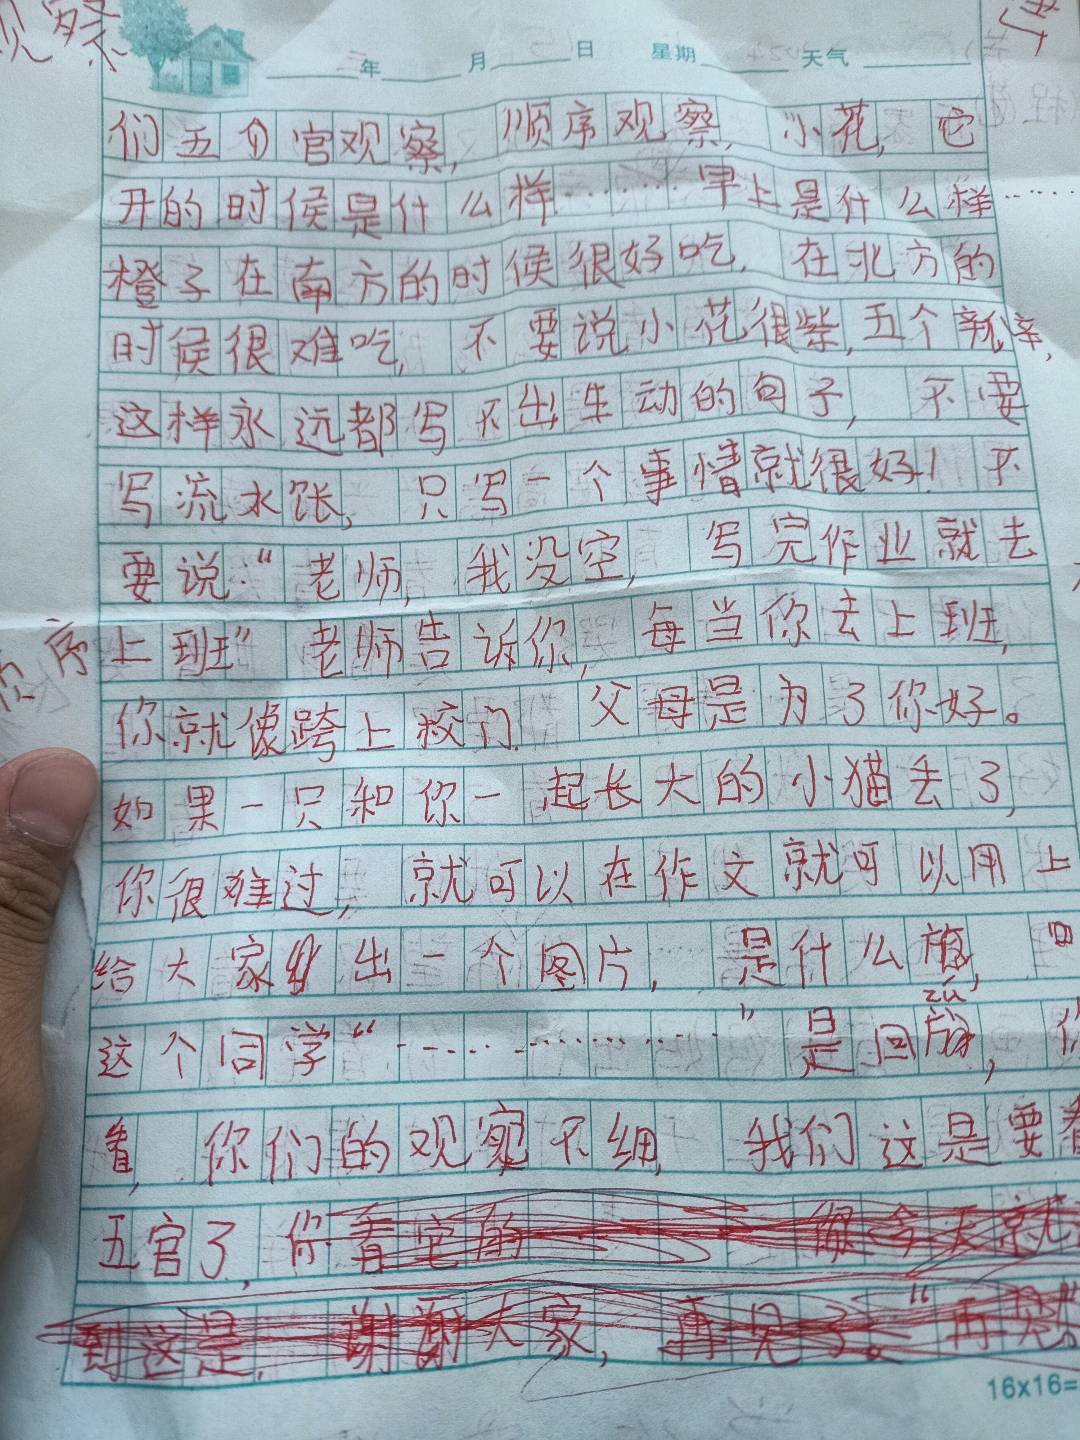 观察
年 月 日 星期 天气
们五个官观察, 顺序观察, 小花, 它
开的时候是什么样………早上是什么样……
橙子在南方的时候很好吃. 在北方的
时候很难吃, 不要说小花很柴, 五个就
这样永远都写不出生动的句子, 不要
写流水账, 只写一个事情就很好! 不
要说:“老师, 我没空, 写完作业就去
序
上班” 老师告诉你, 每当你去上班,
你就像跨上校门. 父母是为了你好。
如果一只和你一起长大的小猫丢了,
你很难过, 就可以在作文就可以用上
给大家 出一个图片, 是什么
zú
这个同学“………………”是回
看, 你们的观察不细, 我们这是要看
五官了, 你看它的 你今天就
到这是, 谢谢大家, 再见了。“再见”
16x16=